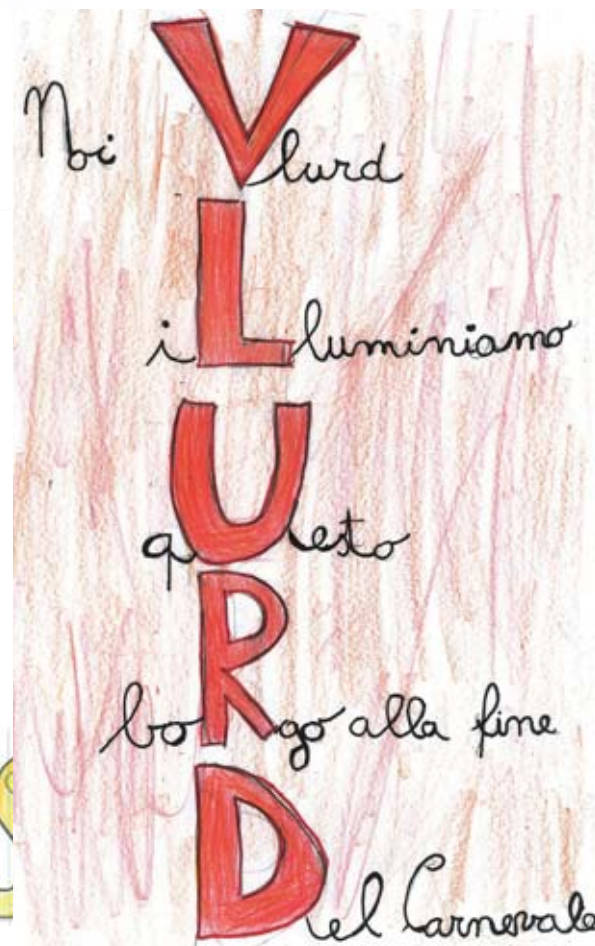 Noi Vlurd
iLluminiamo
qUesto
boRgo alla fine
Del Carnevale